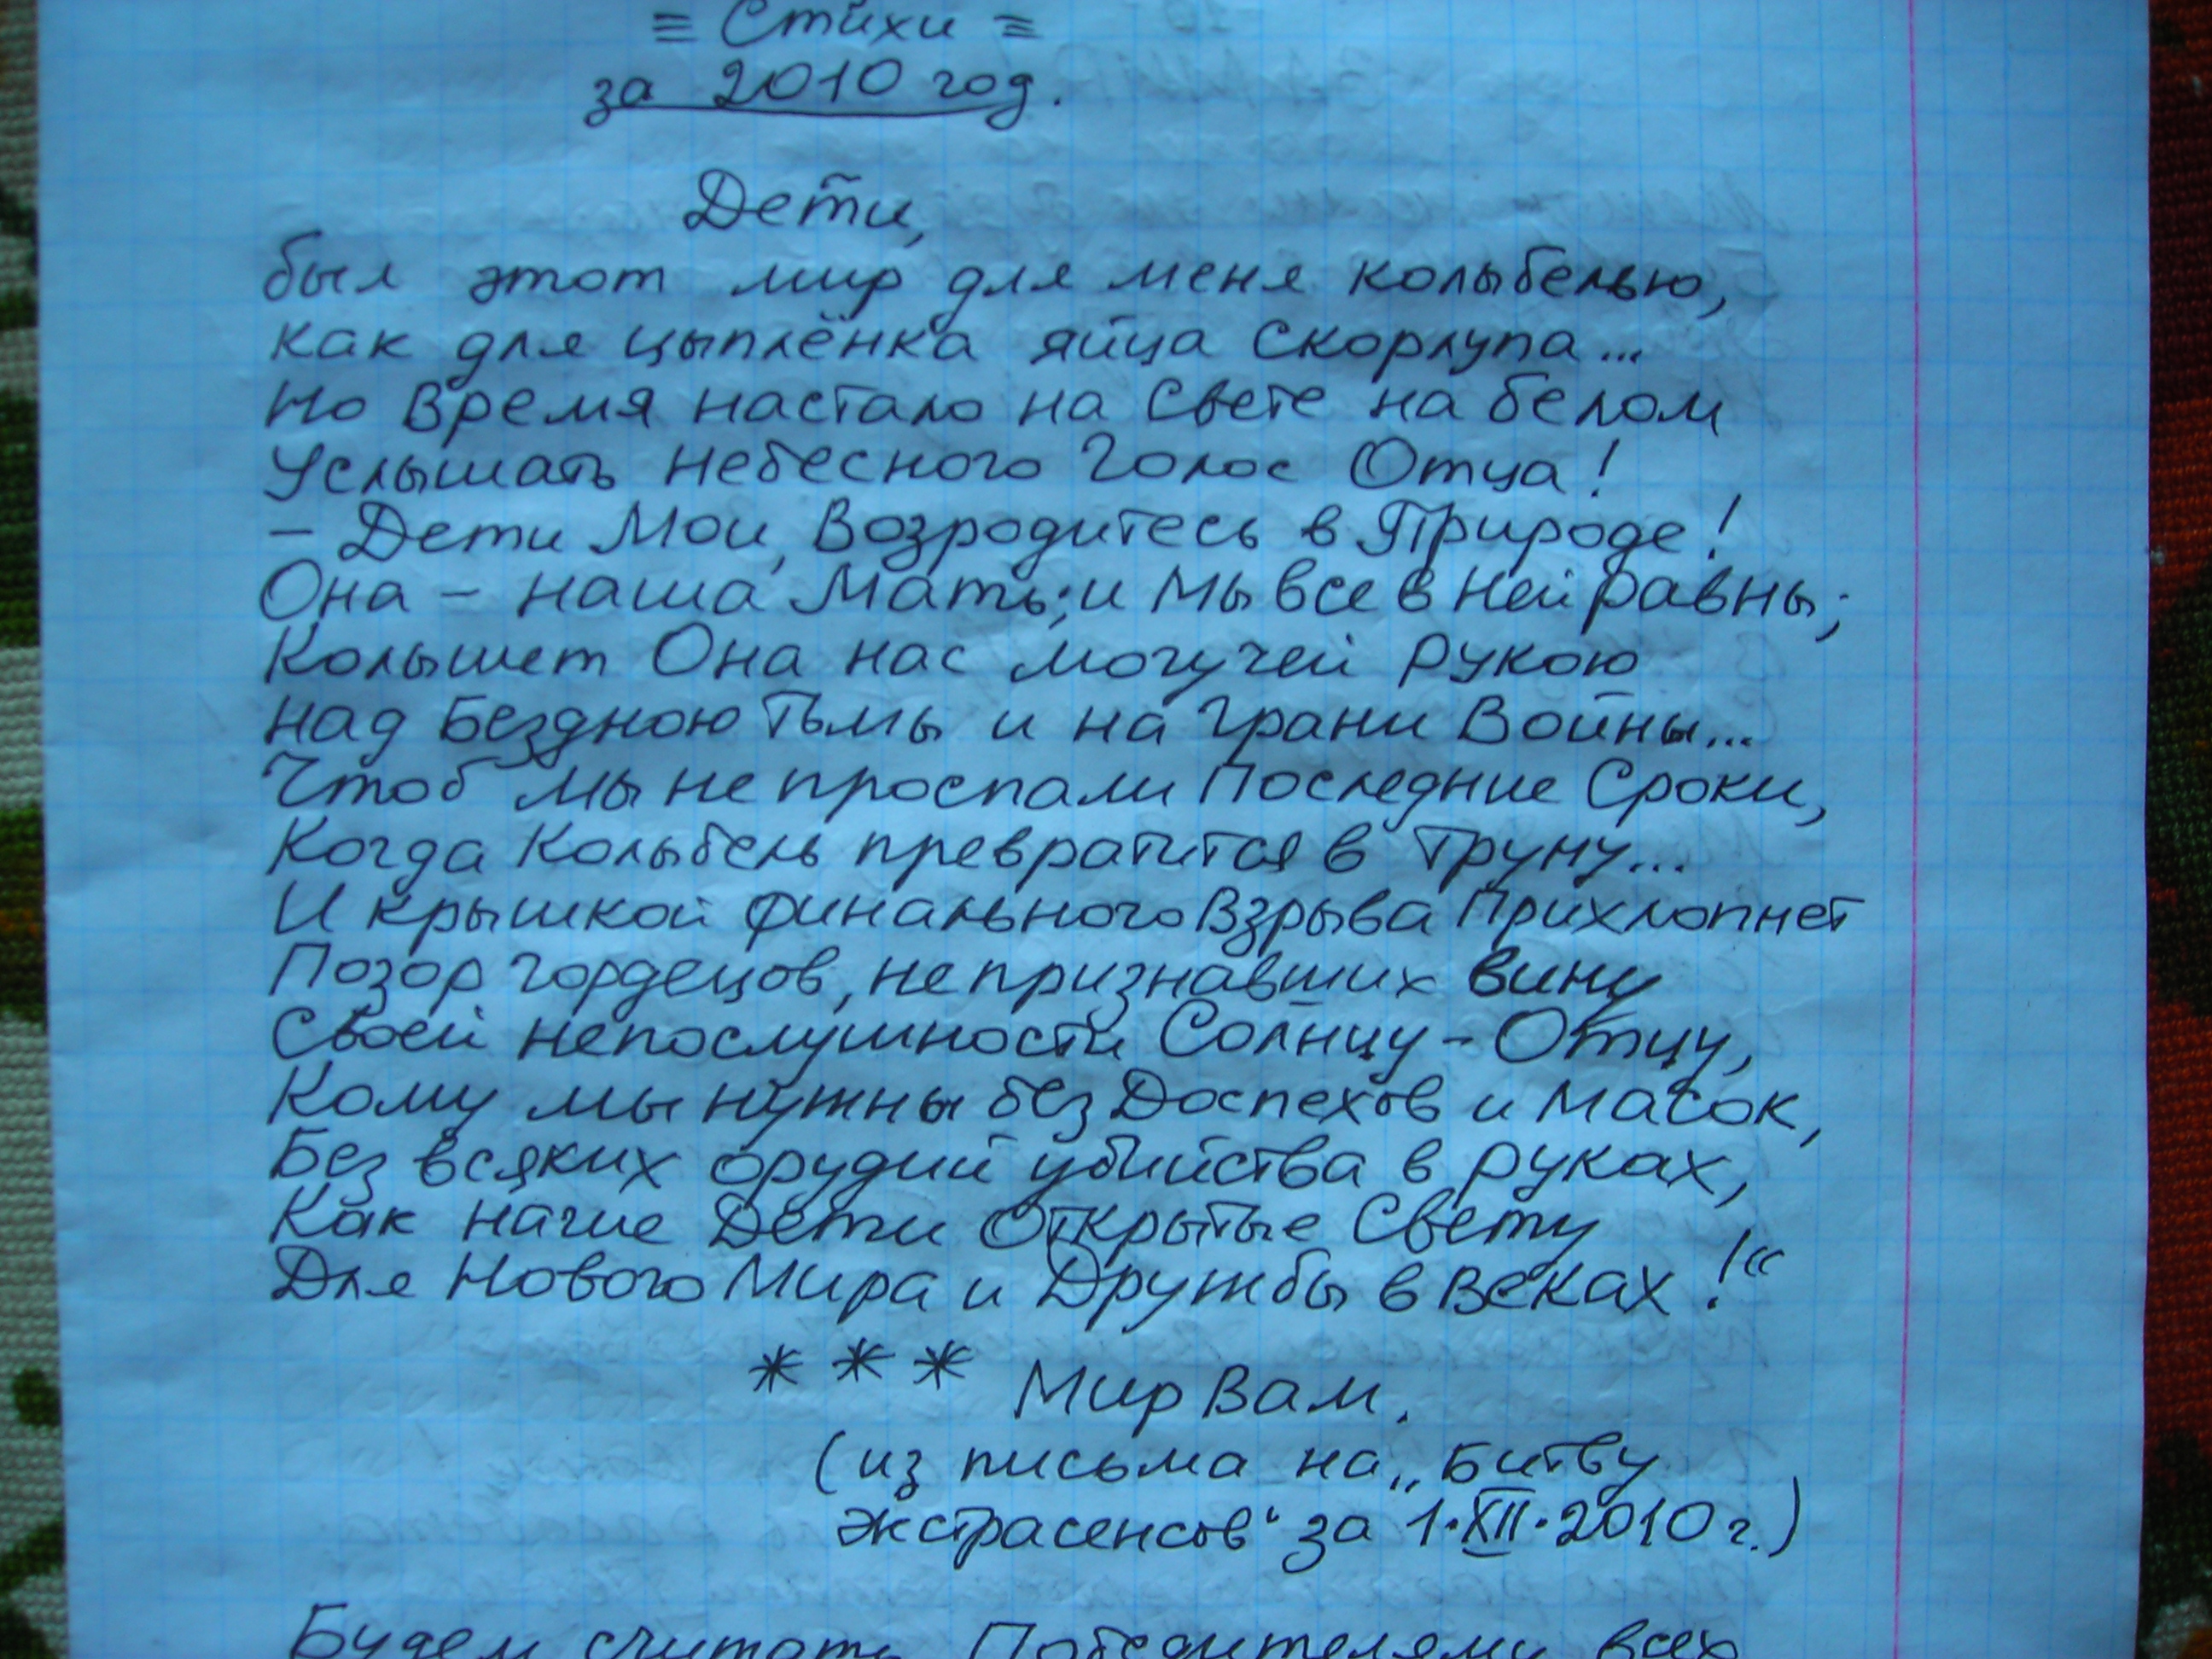 ≡ Стихи ≡
за 2010 год.
Дети,
был этот мир для меня колыбелью,
как для цыплёнка яйца скорлупа...
Но Время настало на Свете на белом
Услышать Небесного Голос Отца!
– Дети Мои, Возродитесь в Природе!
Она – наша Мать; и Мы все в Ней равны;
Колышет Она нас могучей Рукою
над Бездною Тьмы и на Грани Войны...
Чтоб мы не проспали Последние Сроки,
Когда Колыбель превратится в труну...
И крышкой финального Взрыва Прихлопнет
Позор гордецов, не признавших вину
Своей непослушности Солнцу-Отцу,
Кому мы нужны без Доспехов и Масок,
Без всяких орудий убийства в руках,
Как нагие Дети Открытые Свету
Для Нового Мира и Дружбы в Веках!“
* * * Мир Вам.
(из письма на „Битву
экстрасенсов“ за 1·XII·2010 г.)
Будем считать Победителями всех